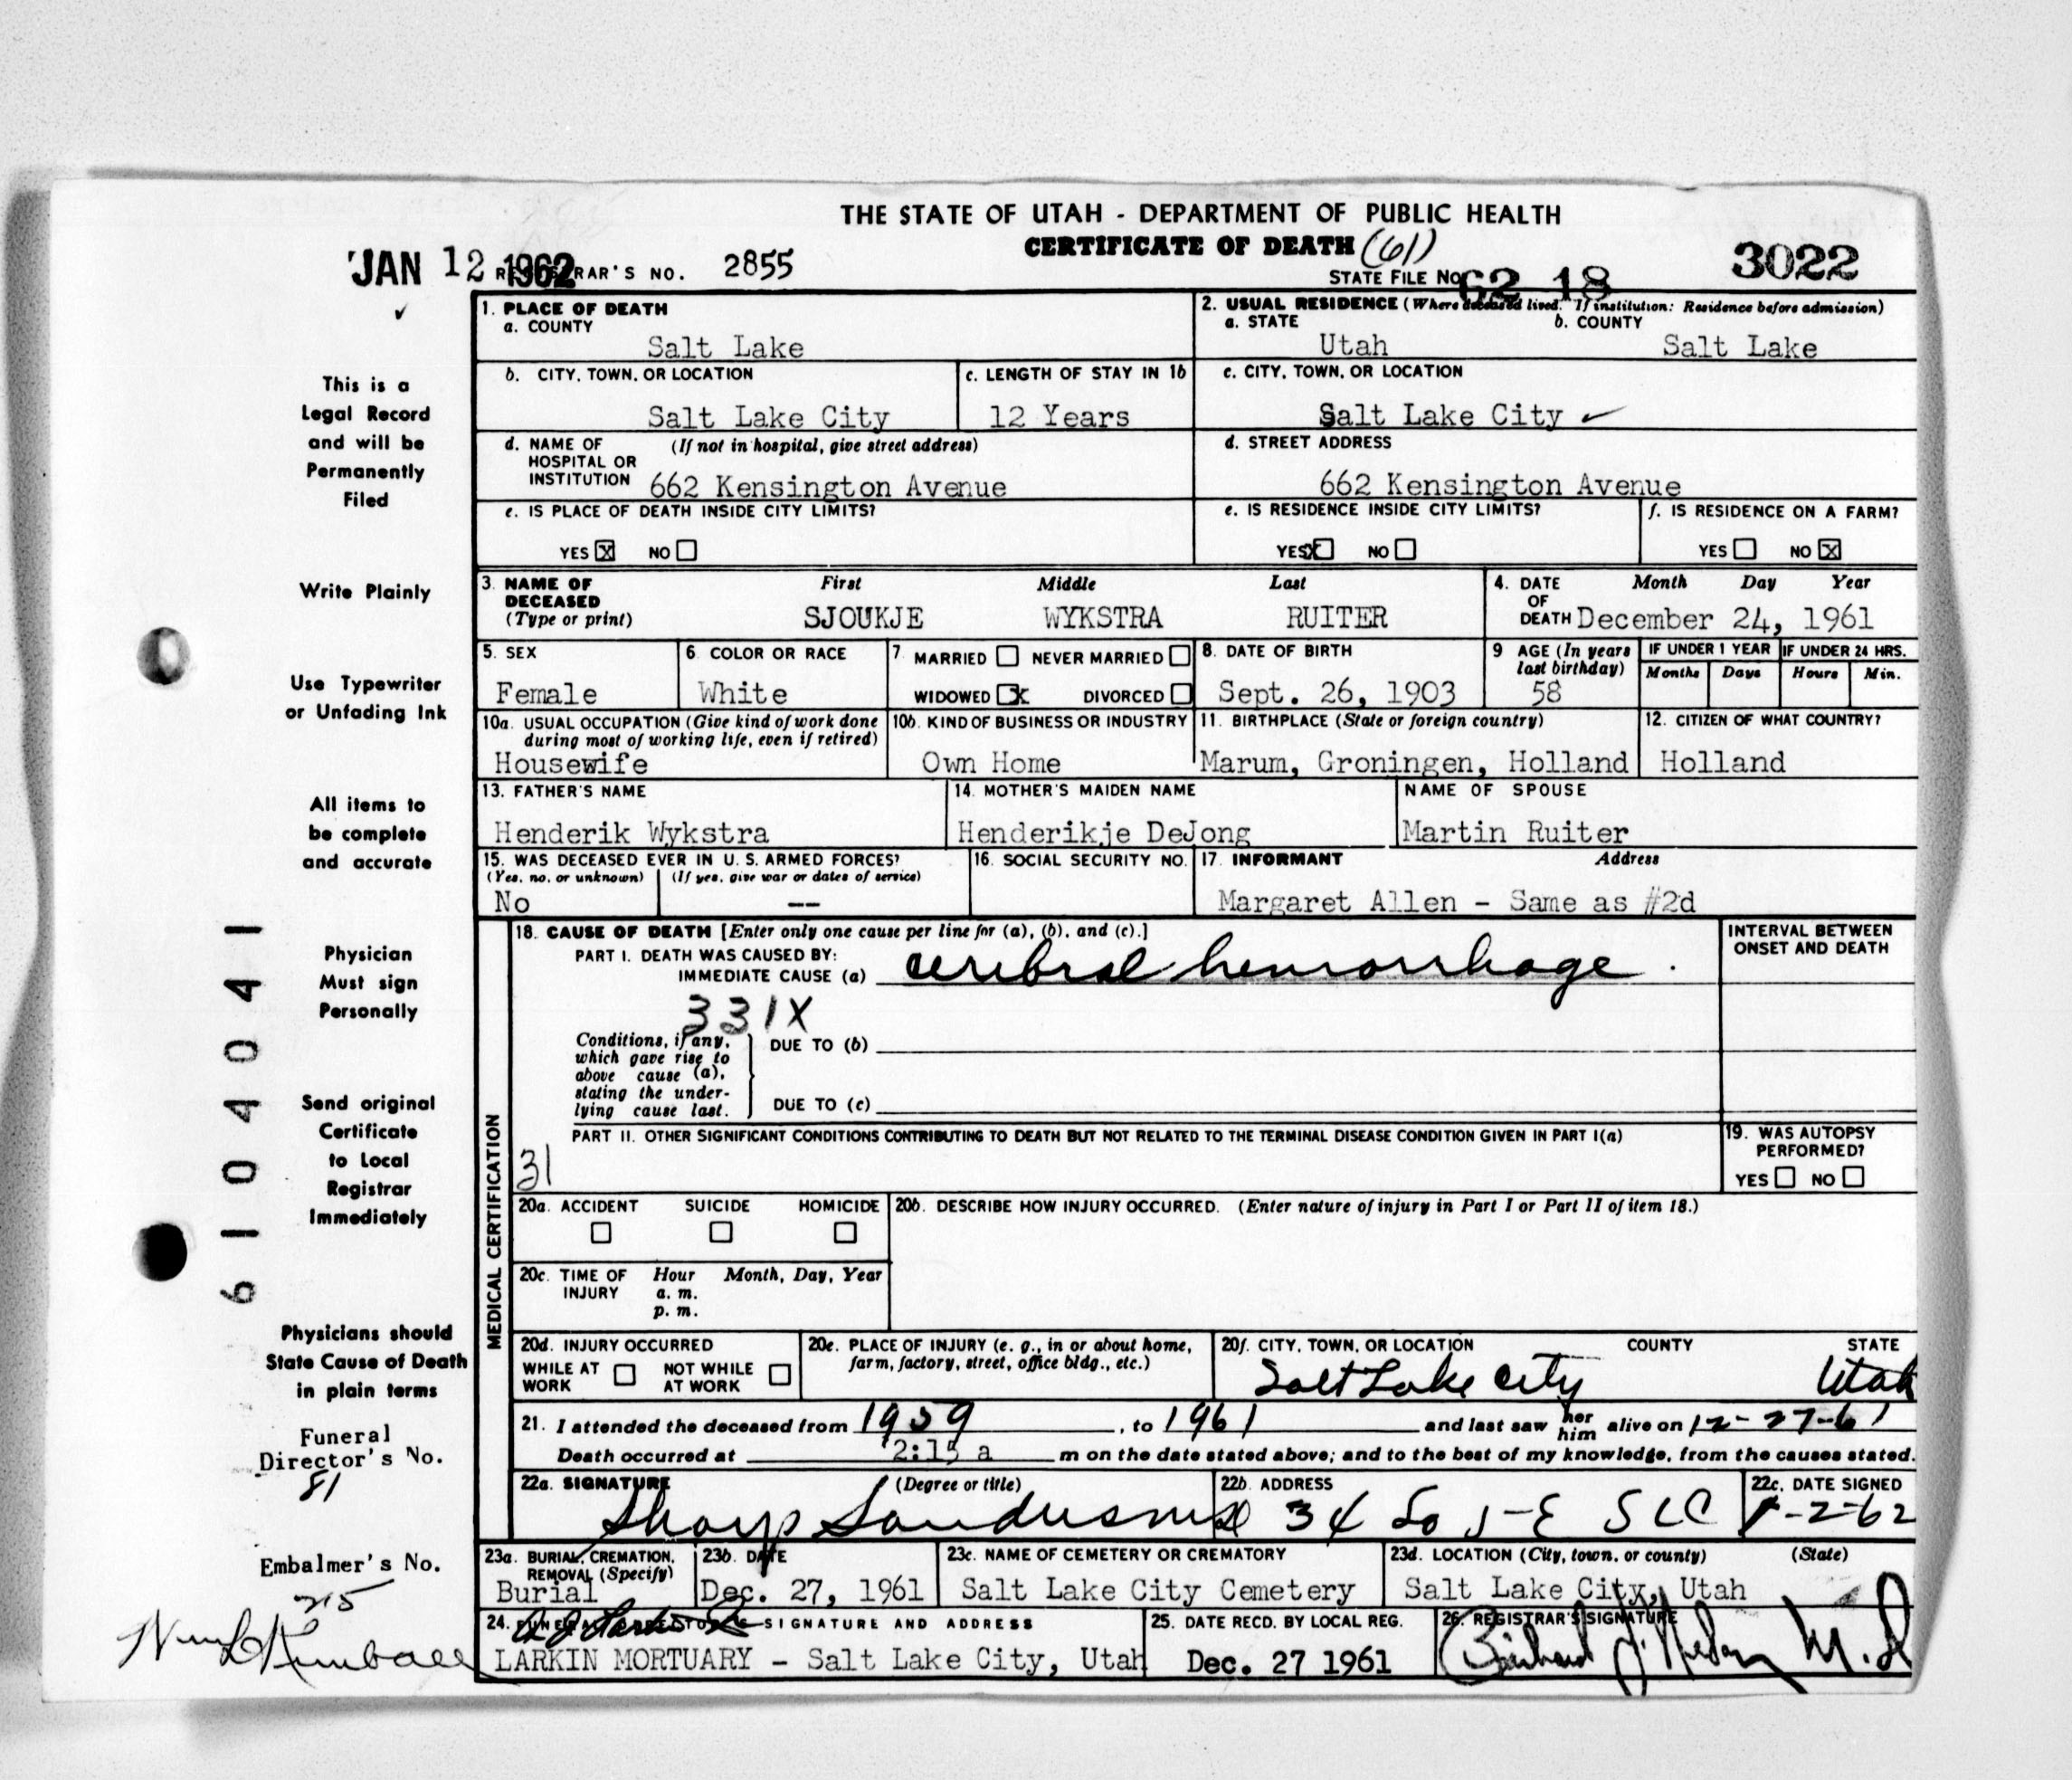 THE STATE OF UTAH - DEPARTMENT OF PUBLIC HEALTH
CERTIFICATE OF DEATH (61)
JAN 12 1962 REGISTRAR'S NO. 2855 STATE FILE NO. 62 18 3022
1. PLACE OF DEATH
a. COUNTY
Salt Lake
2. USUAL RESIDENCE (Where deceased lived. If institution: Residence before admission)
a. STATE b. COUNTY
Utah Salt Lake
b. CITY, TOWN, OR LOCATION c. LENGTH OF STAY IN 1b
Salt Lake City 12 Years
c. CITY, TOWN, OR LOCATION
Salt Lake City
d. NAME OF (If not in hospital, give street address)
HOSPITAL OR
INSTITUTION 662 Kensington Avenue
d. STREET ADDRESS
662 Kensington Avenue
e. IS PLACE OF DEATH INSIDE CITY LIMITS?
YES X NO
e. IS RESIDENCE INSIDE CITY LIMITS?
YES X NO
f. IS RESIDENCE ON A FARM?
YES NO X
3. NAME OF DECEASED (Type or print)
First Middle Last
SJOUKJE WYKSTRA RUITER
4. DATE OF DEATH Month Day Year
December 24, 1961
5. SEX
Female
6. COLOR OR RACE
White
7. MARRIED NEVER MARRIED
WIDOWED X DIVORCED
8. DATE OF BIRTH
Sept. 26, 1903
9 AGE (In years last birthday)
58
IF UNDER 1 YEAR IF UNDER 24 HRS.
Months Days Hours Min.
10a. USUAL OCCUPATION (Give kind of work done
during most of working life, even if retired)
Housewife
10b. KIND OF BUSINESS OR INDUSTRY
Own Home
11. BIRTHPLACE (State or foreign country)
Marum, Groningen, Holland
12. CITIZEN OF WHAT COUNTRY?
Holland
13. FATHER'S NAME
Henderik Wykstra
14. MOTHER'S MAIDEN NAME
Henderikje DeJong
NAME OF SPOUSE
Martin Ruiter
15. WAS DECEASED EVER IN U. S. ARMED FORCES?
(Yes, no, or unknown) (If yes, give war or dates of service)
No --
16. SOCIAL SECURITY NO.
17. INFORMANT Address
Margaret Allen - Same as #2d
MEDICAL CERTIFICATION
18. CAUSE OF DEATH [Enter only one cause per line for (a), (b), and (c).]
PART I. DEATH WAS CAUSED BY:
IMMEDIATE CAUSE (a) cerebral hemorrhage.
INTERVAL BETWEEN
ONSET AND DEATH
331X
Conditions, if any,
which gave rise to
above cause (a),
stating the under-
lying cause last.
DUE TO (b)
DUE TO (c)
PART II. OTHER SIGNIFICANT CONDITIONS CONTRIBUTING TO DEATH BUT NOT RELATED TO THE TERMINAL DISEASE CONDITION GIVEN IN PART I(a)
31
19. WAS AUTOPSY
PERFORMED?
YES NO
20a. ACCIDENT SUICIDE HOMICIDE
20b. DESCRIBE HOW INJURY OCCURRED. (Enter nature of injury in Part I or Part II of item 18.)
20c. TIME OF INJURY Hour Month, Day, Year
a. m.
p. m.
20d. INJURY OCCURRED
WHILE AT WORK NOT WHILE AT WORK
20e. PLACE OF INJURY (e. g., in or about home,
farm, factory, street, office bldg., etc.)
20f. CITY, TOWN, OR LOCATION COUNTY STATE
Salt Lake City Utah
21. I attended the deceased from 1959, to 1961 and last saw her him alive on 12-27-61
Death occurred at 2:15 a m on the date stated above; and to the best of my knowledge, from the causes stated.
22a. SIGNATURE (Degree or title)
22b. ADDRESS
34 So 5-E SLC
22c. DATE SIGNED
1-2-62
23a. BURIAL, CREMATION,
REMOVAL (Specify)
Burial
23b. DATE
Dec. 27, 1961
23c. NAME OF CEMETERY OR CREMATORY
Salt Lake City Cemetery
23d. LOCATION (City, town, or county) (State)
Salt Lake City, Utah
24. FUNERAL DIRECTOR'S SIGNATURE AND ADDRESS
LARKIN MORTUARY - Salt Lake City, Utah
25. DATE RECD. BY LOCAL REG.
Dec. 27 1961
26. REGISTRAR'S SIGNATURE
M.D
This is a
Legal Record
and will be
Permanently
Filed
Write Plainly
Use Typewriter
or Unfading Ink
All items to
be complete
and accurate
Physician
Must sign
Personally
Send original
Certificate
to Local
Registrar
Immediately
Physicians should
State Cause of Death
in plain terms
Funeral
Director's No.
81
Embalmer's No.
215
Kimball
6104041